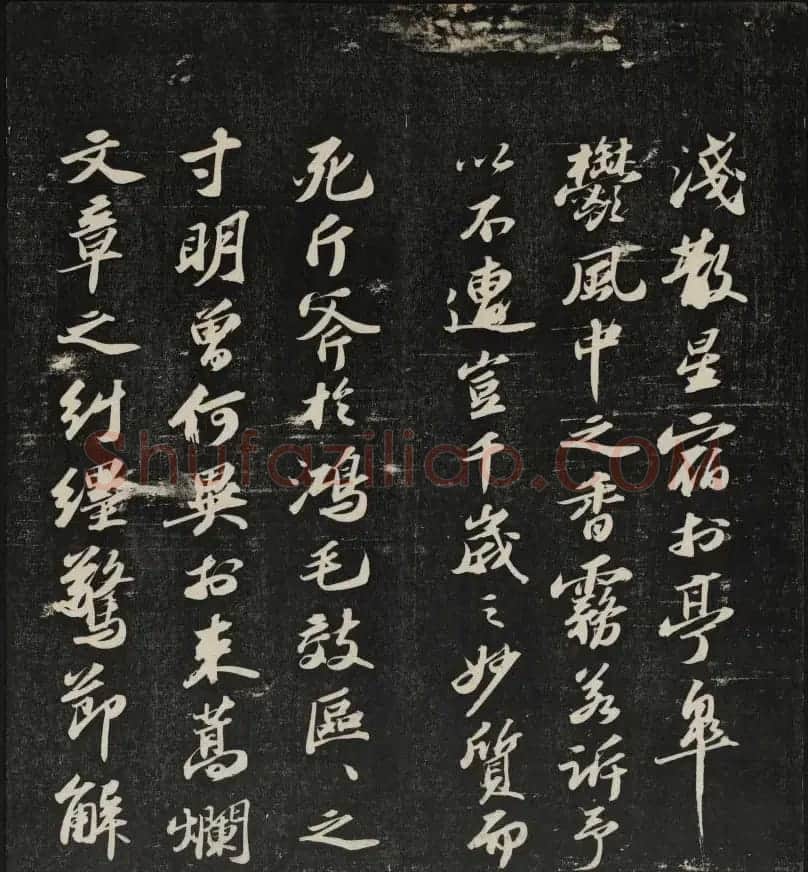 淺散星宿於亭皋
鬱風中之香霧若訴予
以不遭豈千歲之妙質而
死斤斧於鴻毛效區、之
寸明曾何異於束蒿爛
文章之糾纆驚節解
Shufaziliao.COM